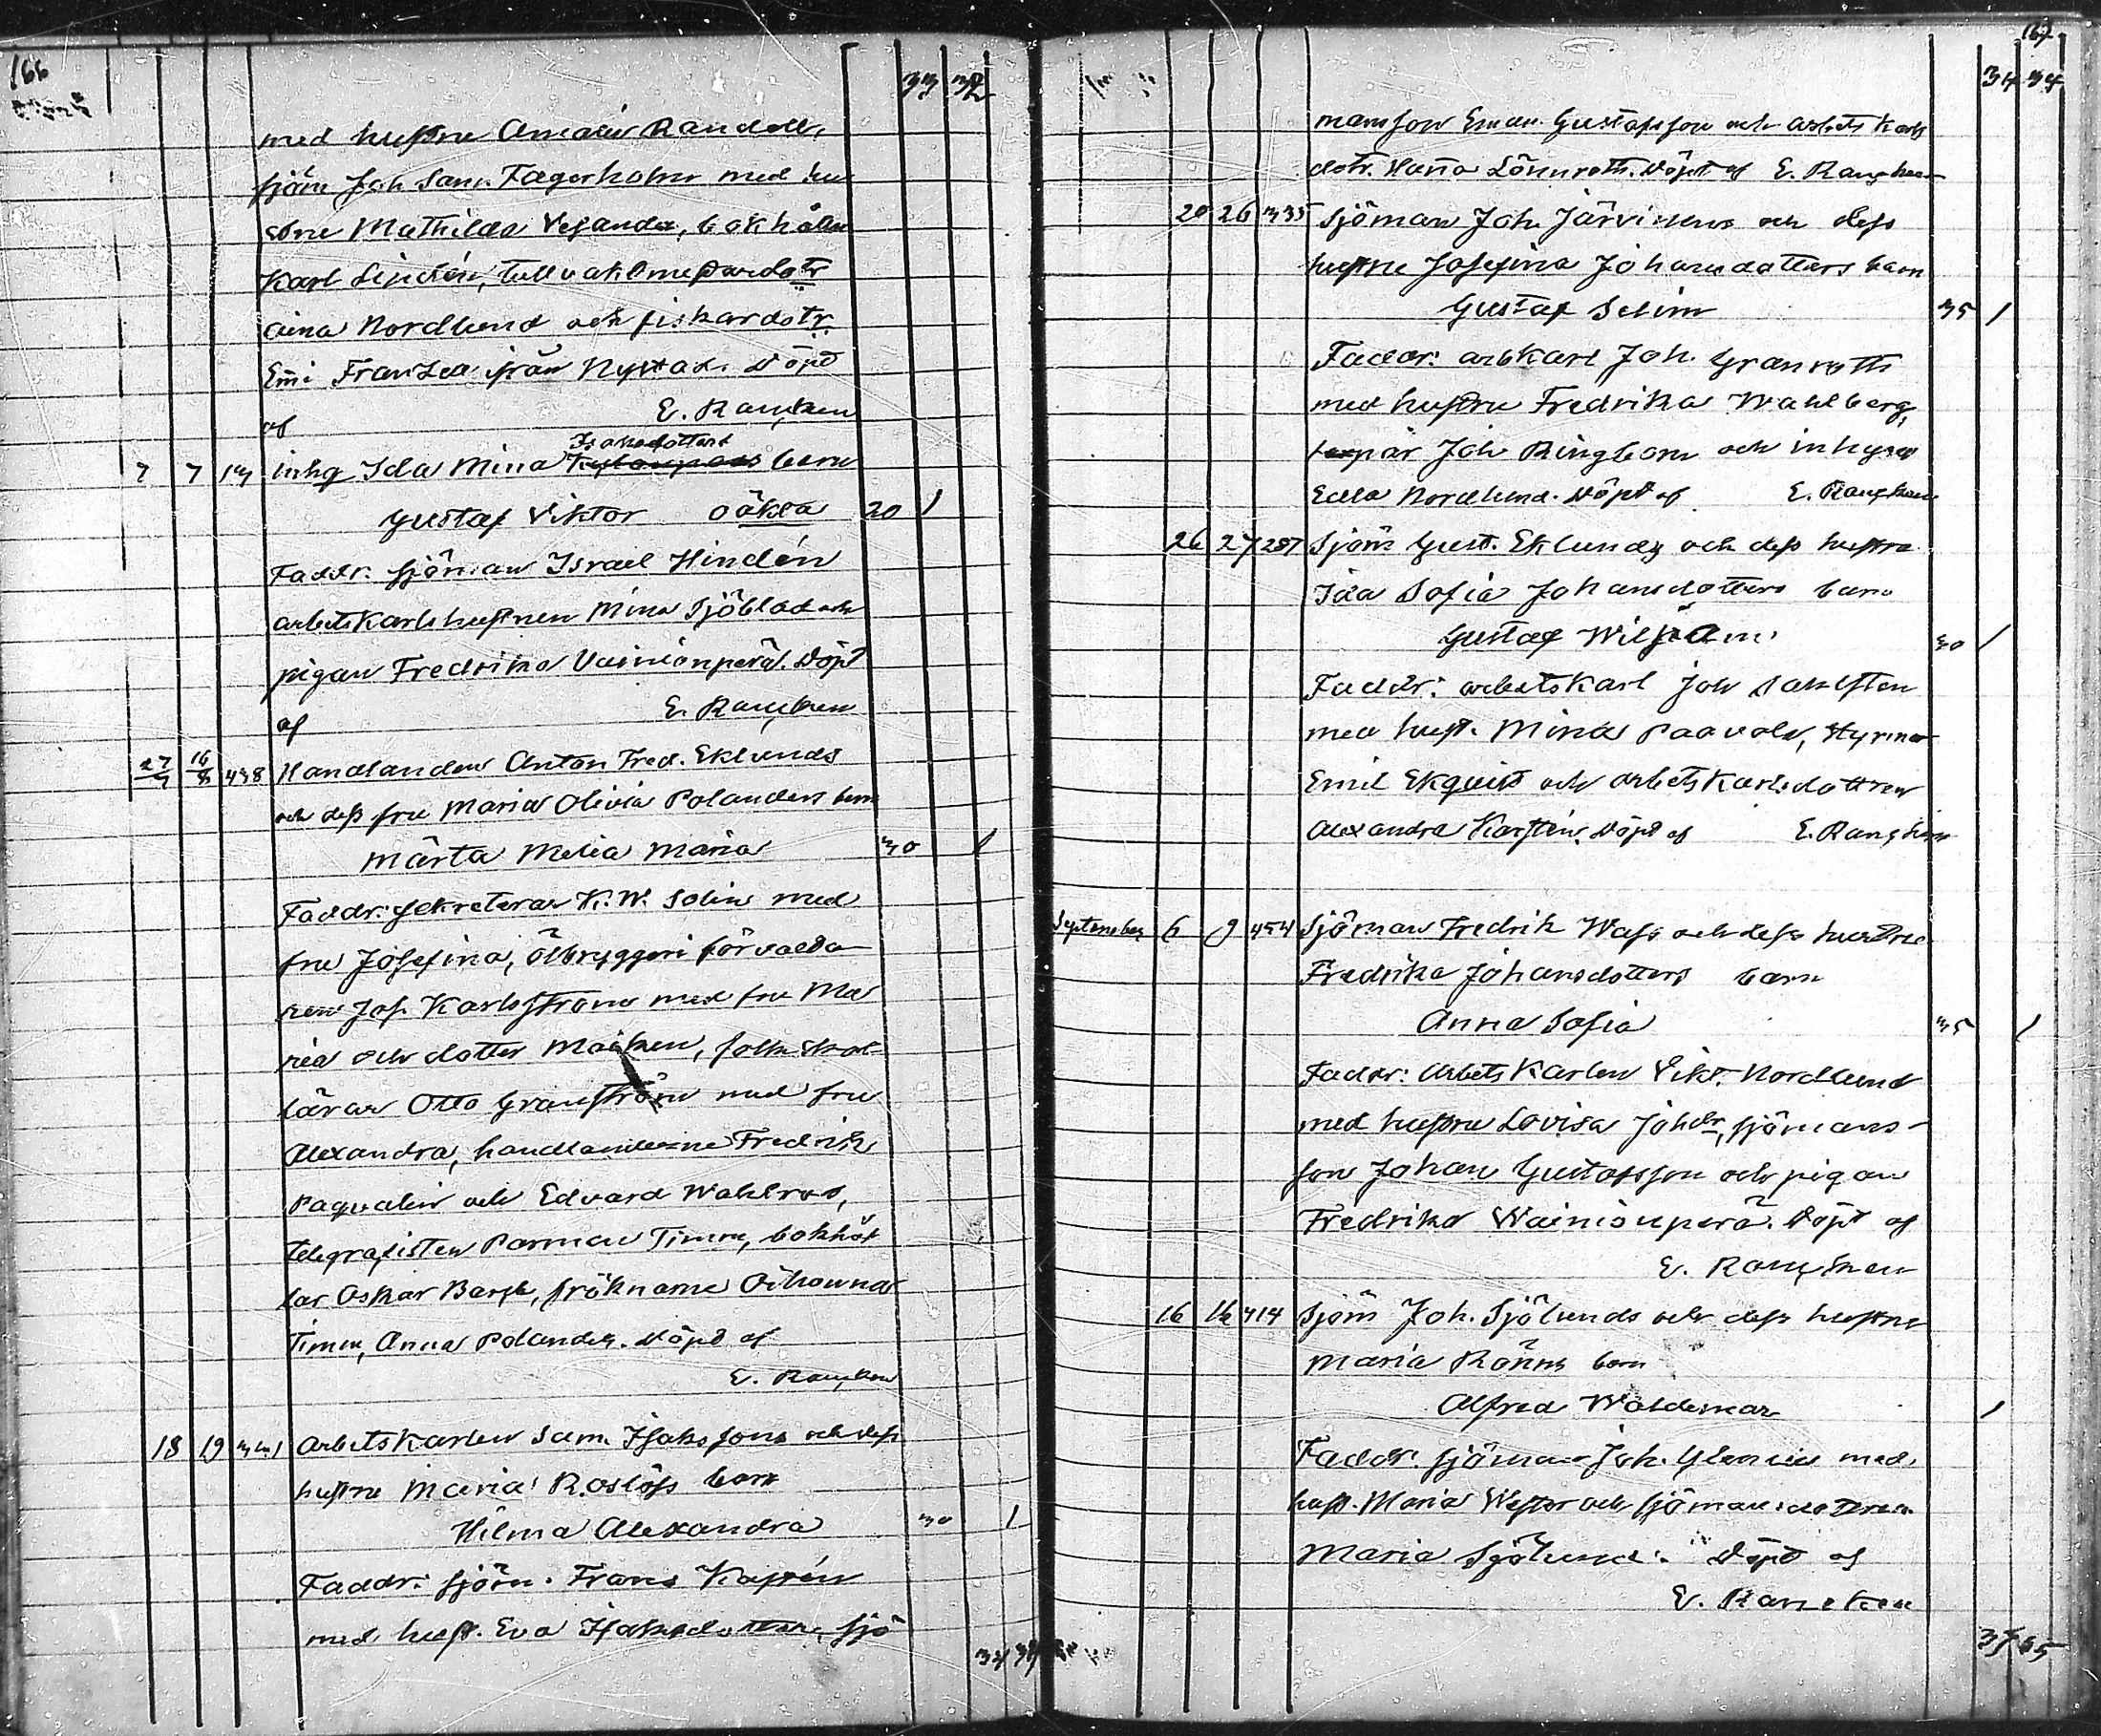 166
33 32
med hustru Amalia Randell,
sjöm Joh Sam. Fagerholm med hu
stru Mathilda Vesander, bokhålln
Karl Lindén, tullvaktmestardotr
Aina Nordlund och fiskardotr.
Emi Fransea från Nystad. Döpt
af E. Rancken
Isaksdotters
7 7 inhg Ida Mina barn
Gustaf Viktor oäkta 20 1
Faddr. sjöman Israel Hindén
arbetskarlshustrun Mina Sjöblad och
pigan Fredrika Vainionperä. Döpt
af E. Rancken
27/7 16/8 438 Handlanden Anton Fred. Eklunds
och dess fru Maria Olivia Polanders barn
Märta Melia Maria 30 1
Faddr: sekreterar K. W. Solin med
fru Josefina, ölbryggeri förvalta
ren Jos. Karlström med fru Ma
ria och dotter Maiken, folkskol
lärar Otto Granström med fru
Alexandra, handlanderne Fredrik
Paqvalin och Edvard Wahlroos,
telegrafisten Timm, bokhål
lar Oskar Bergh, fröknarne
Timm, Anna Polander. Döpt af
E. Rancken
18 19 Arbetskarlen Sam. Isakssons och dess
hustru Maria Roslöfs barn
Hilma Alexandra 30 1
Faddr: sjöm. Frans Kajrén
med hust. Eva Isaksdotter, sjö
34 34
167
34 34
mansson Eman. Gustafsson och arbets karls
dotr. Hanna Lönnroth. Döpt af E. Rancken
20 26 335 Sjöman Joh. Järvinens och dess
hustru Josefina Johansdotters barn
Gustaf Selim 35 1
Faddr: arbkarl Joh. Granroth
med hustru Fredrika Wahlberg,
Joh Ringbom och inhyses
Edla Nordlund. Döpt af E. Rancken
26 27 287 Sjöm Gust. Eklunds och dess hustru
Ida Sofia Johansdotters barn
Gustaf Wiljam 30 1
Faddr: arbetskarl Joh Dahlsten
med hust. Mina Paavola, styrman
Emil Ekquist och arbetskarlsdottren
Alexandra Karstén. Döpt af E. Rancken
September 6 9 454 Sjöman Fredrik Wass och dess hustru
Fredrika Johansdotters barn
Anna Sofia 35 1
Faddr: Arbetskarlen Vikt. Nordlund
med hustru Lovisa Johdr, sjömans-
son Johan Gustafsson och pigan
Fredrika Wainionperä. Döpt af
E. Rancken
16 16 414 Sjöm Joh. Sjölunds och dess hustru
Maria Rönns barn
Alfred Waldemar 1
Faddr. sjöman Joh. med
hust. Maria Wester och sjömansdottren
Maria Sjölund. Döpt af
E. Rancken
37 35